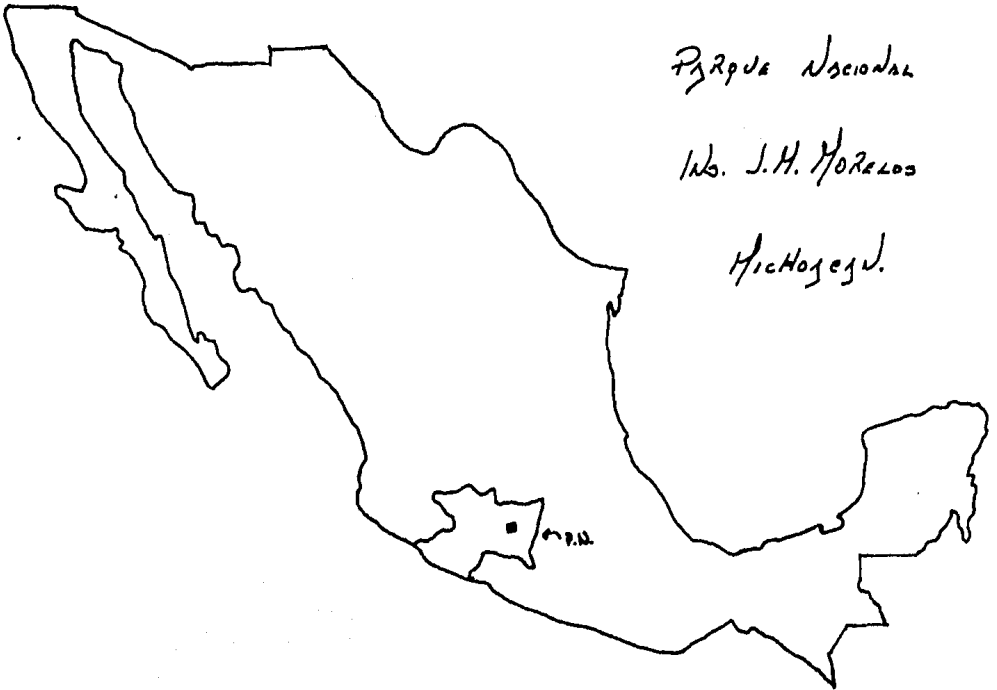 PARQUE NACIONAL
INS. J.M. MORELOS
MICHOACAN.
P.N.